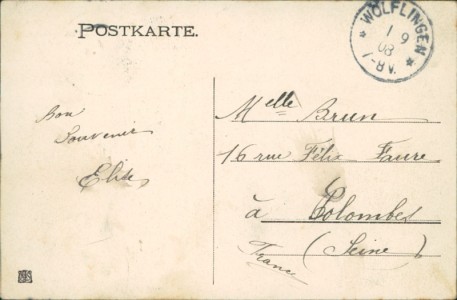 POSTKARTE.
* WÖLFLINGEN *
1 9
08
7-8 V.
Bon
Souvenir
Elise
Melle Brun
16 rue Félix Faure
à Colombes
(Seine)
France